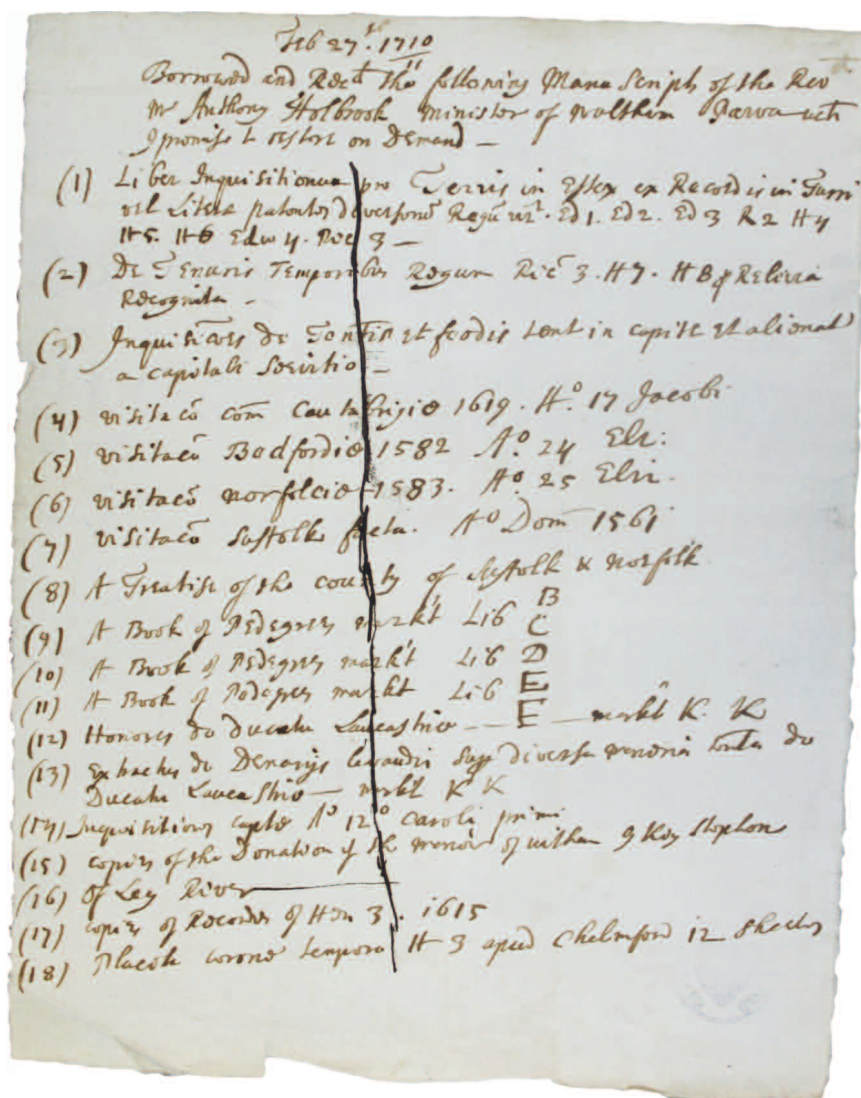 Feb 27th. 1710/11
Borrowed and Recd the following Manu Scripts of the Rev
Mr Anthony Holbrook Minister of Waltham Parva wch
I promise to restore on Demand —
(1) Liber Inquisitionum pro Terris in Essex ex Recordis in Turri
vel Litera patentes diversorum Regū vizt. Ed 1. Ed 2. Ed 3 R 2 H 4
H 5. H 6 Edw 4. Ric 3 —
(2) De Tenuris Temporibus Regum Ric 3. H 7. H 8
Recognita —
(3) Inquisicōes de et feodis tent in capite et alienat
a capitali Servitio —
(4) visitacō com Cantabrigie 1619. Ao. 17 Jacobi
(5) visitacō Bedfordie 1582 Ao. 24 Elz:
(6) visitacō norfolcie 1583. Ao. 25 Eliz.
(7) visitacō Suffolke facta. Ao Dom 1561
(8) A Treatise of the county of Suffolk & Norfolk
(9) A Book of Pedegrees markt Lib B
(10) A Book of Pedegrees markt Lib C D
(11) A Book of Pedegrees markt Lib E
(12) Honores de Ducatu Lancastrie — E — markt K. K
(13) Extractus de Denarijs levandis Supr diversa maneria de
Ducatu Lancastrie — markt K K
(14) Inquisitions capte Ao 12o Caroli primi
(15) copies of the Donation of the manor of witham Stephen
(16) Of Ley River
(17) copies of Recordes of Hen 3. 1615
(18) Placita corone tempora H 3 apud Chelmsford 12 sheetes